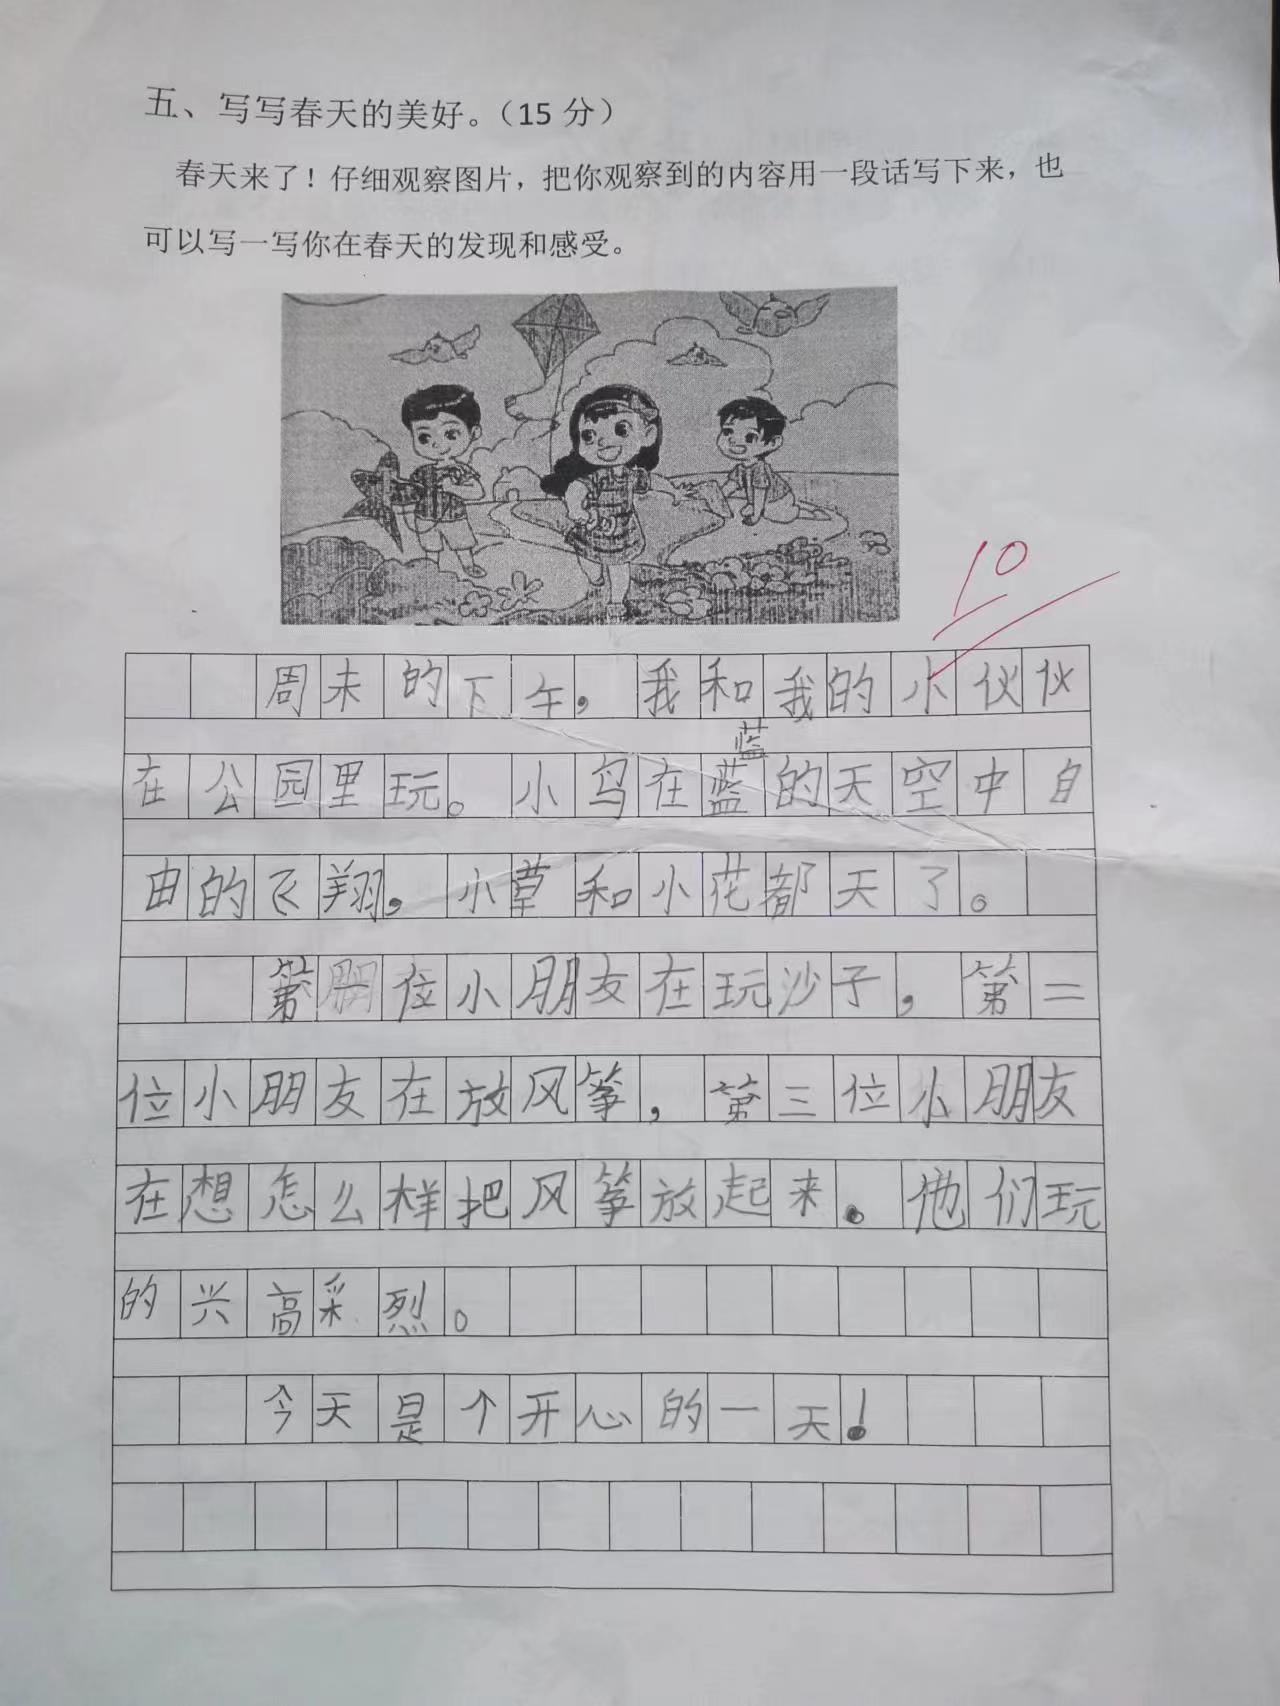 五、写写春天的美好。（15分）
春天来了！仔细观察图片，把你观察到的内容用一段话写下来，也
可以写一写你在春天的发现和感受。
10
周末的下午，我和我的小伙伙
在公园里玩。小鸟在蓝蓝的天空中自
由的飞翔，小草和小花都天了。
第一位小朋友在玩沙子，第二
位小朋友在放风筝，第三位小朋友
在想怎么样把风筝放起来。他们玩
的兴高采烈。
今天是个开心的一天！